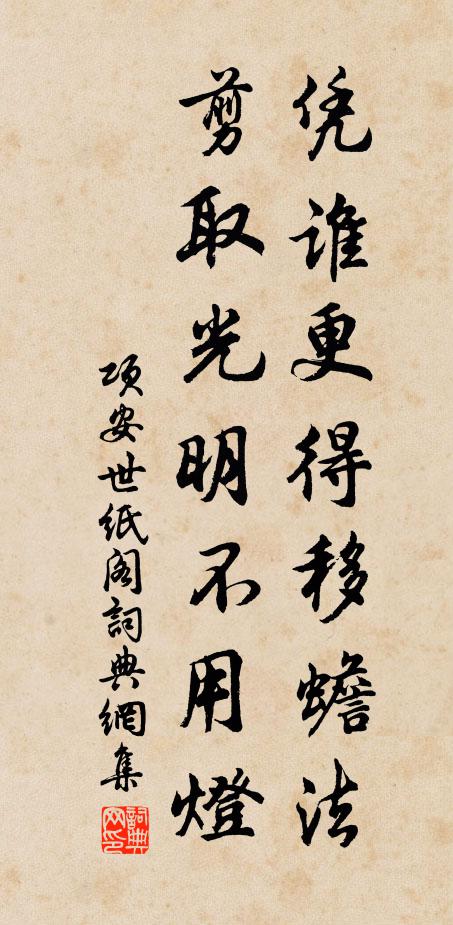 凭谁更得移蟾法
剪取光明不用燈
项安世纸阁詞典網集
詞典网印